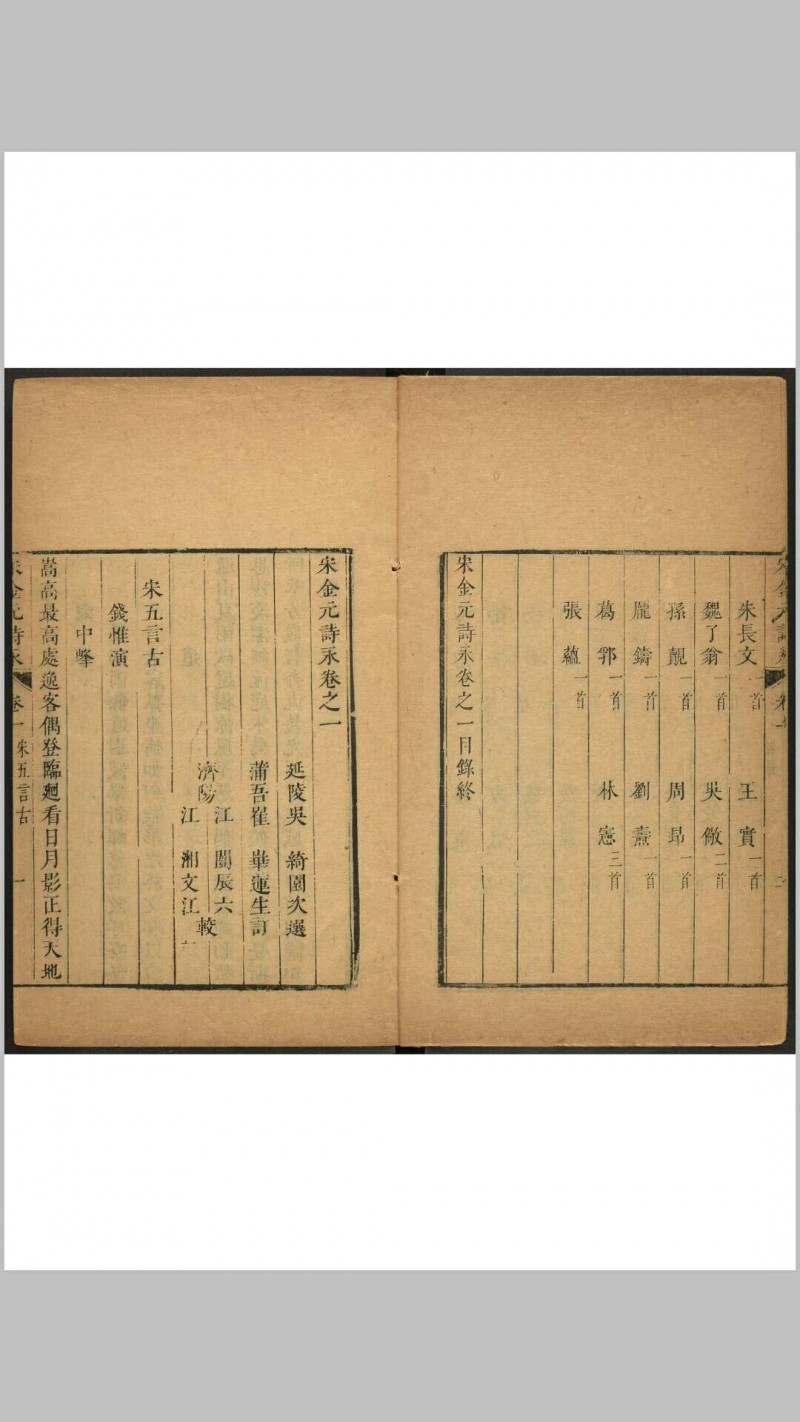 朱長文一首　王實一首
魏了翁一首　吳儆二首
孫覿一首　周昻一首
龐鑄一首　劉燾一首
葛郛一首　林憲三首
張蘊一首
宋金元詩永卷之一目錄終
宋金元詩永卷之一
延陵吳　綺園次選
蒲吾崔　華蓮生訂
江　闓辰六
濟陽　較
江　湘文江
宋五言古
錢惟演
中峰
嵩高最高處逸客偶登臨廻看日月影正得天地
宋金元詩永　卷一　宋五言古　一